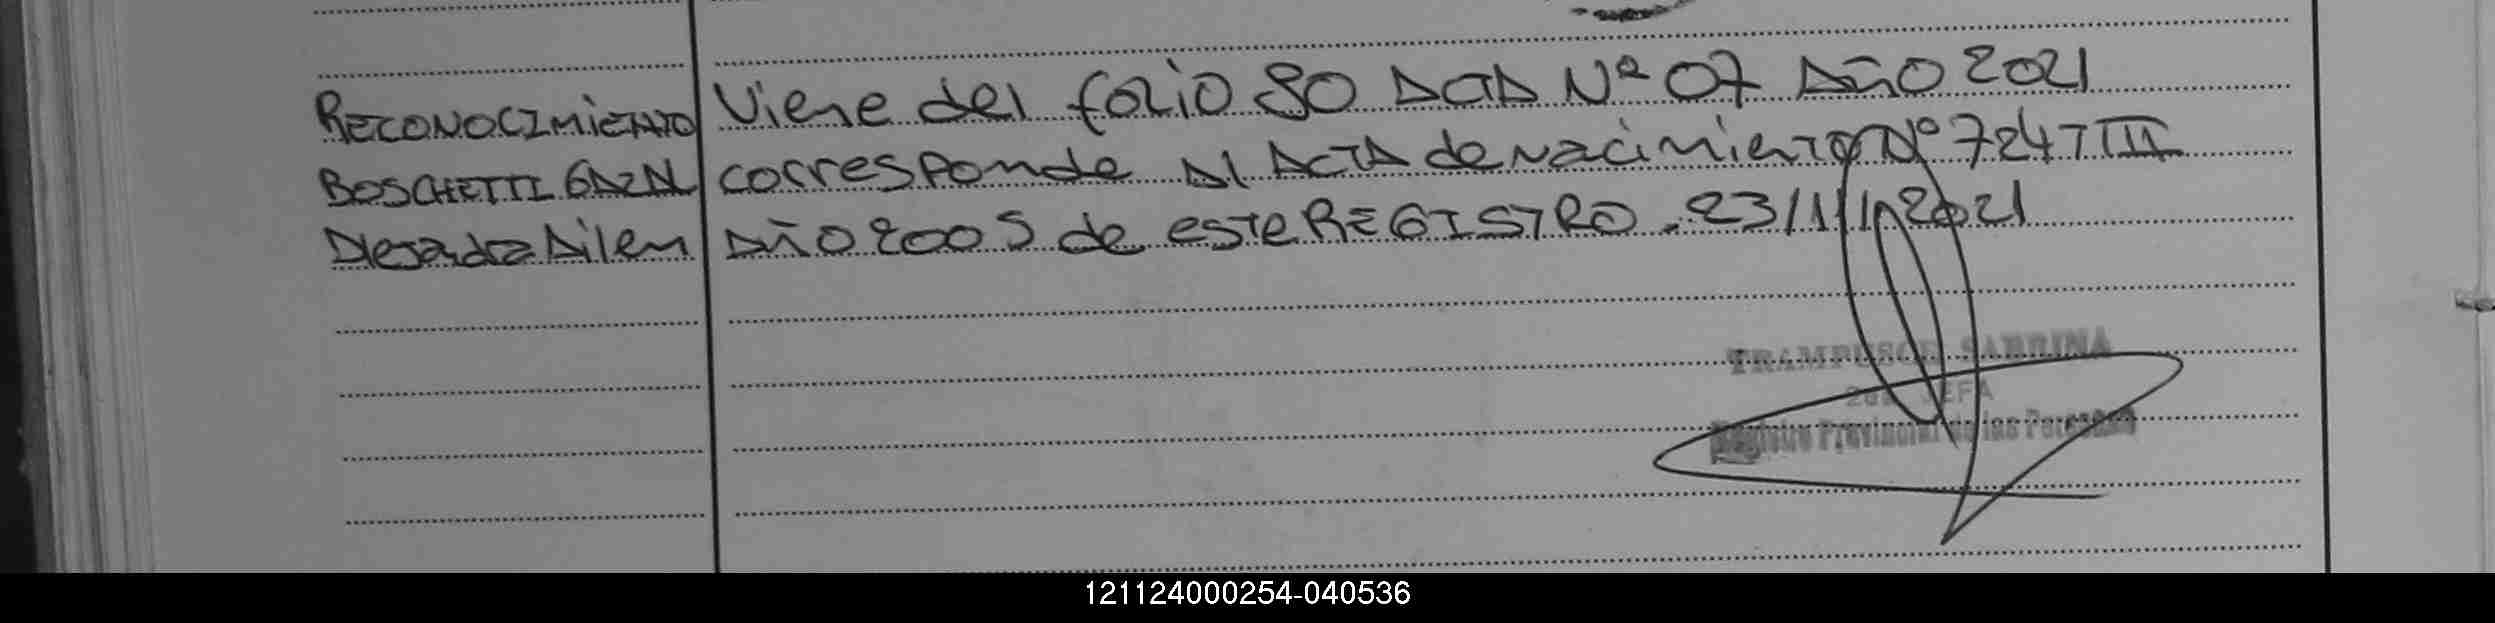 RECONOCIMIENTO
BOSCHETTI GAZAL
Alejandra Ailen
Viene del folio 80 ACTA Nº 07 AÑO 2021
corresponde al ACTA de nacimiento Nº 724 T III
AÑO 2005 de este REGISTRO. 23/11/2021
TRAMPUSCH SABRINA
2da JEFA
Registro Provincial de las Personas
121124000254-040536